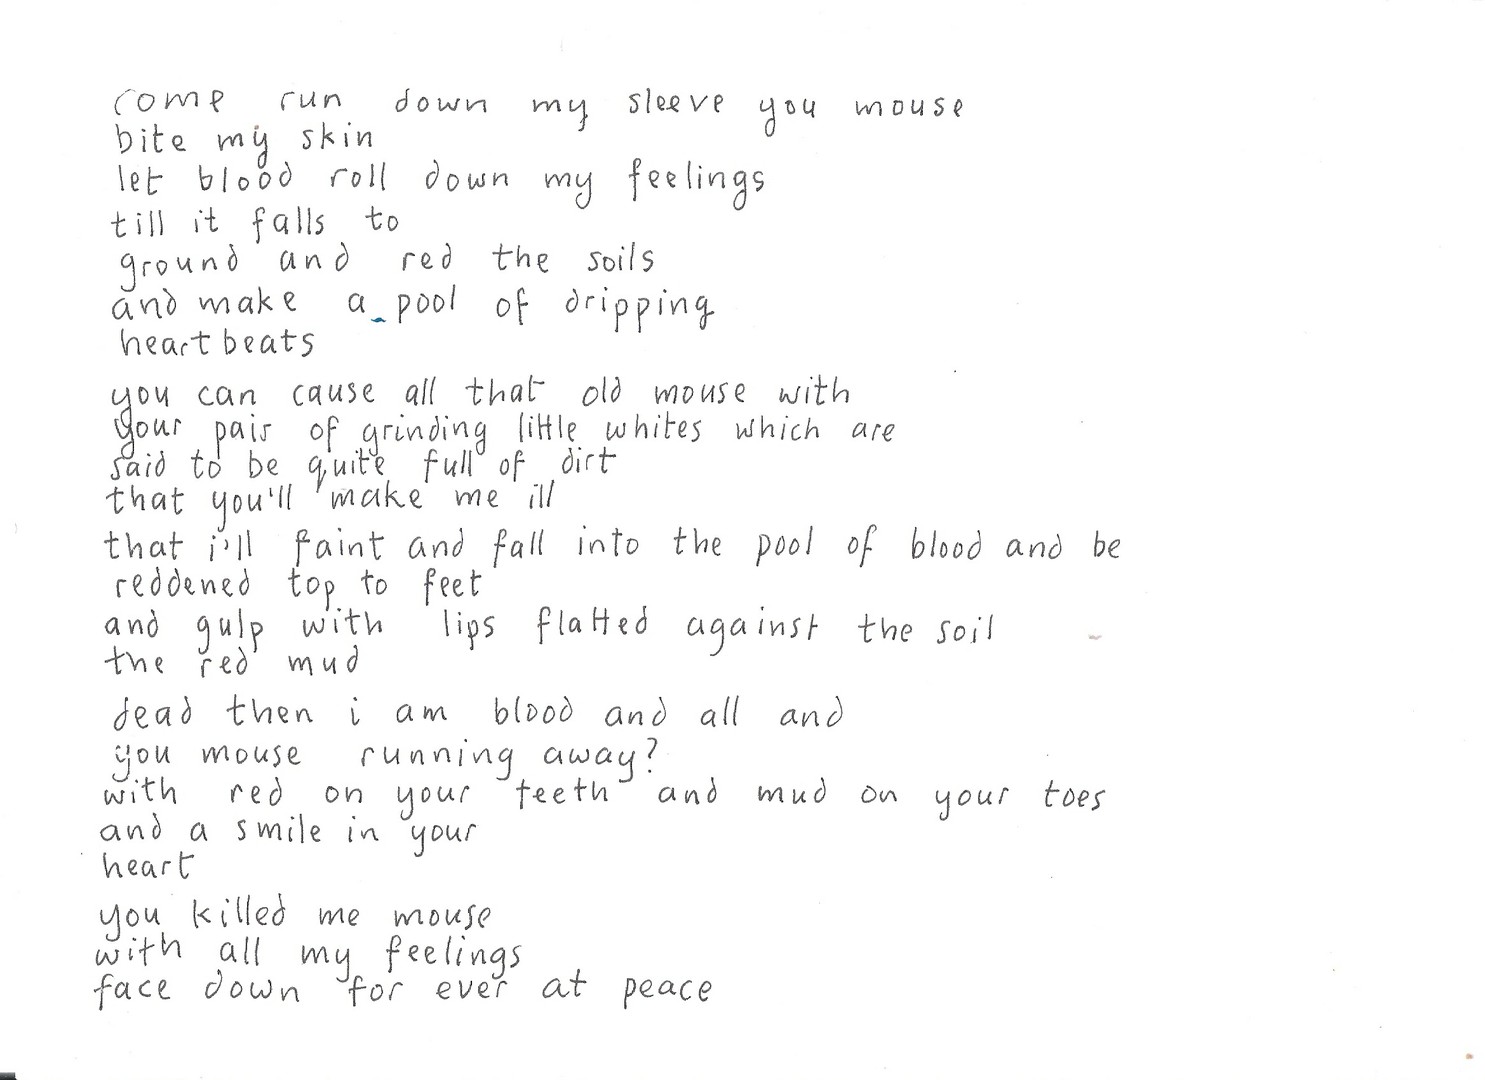 come run down my sleeve you mouse
bite my skin
let blood roll down my feelings
till it falls to
ground and red the soils
and make a pool of dripping
heartbeats
you can cause all that old mouse with
your pair of grinding little whites which are
said to be quite full of dirt
that you'll make me ill
that i'll faint and fall into the pool of blood and be
reddened top to feet
and gulp with lips flatted against the soil
the red mud
dead then i am blood and all and
you mouse running away?
with red on your teeth and mud on your toes
and a smile in your
heart
you killed me mouse
with all my feelings
face down for ever at peace